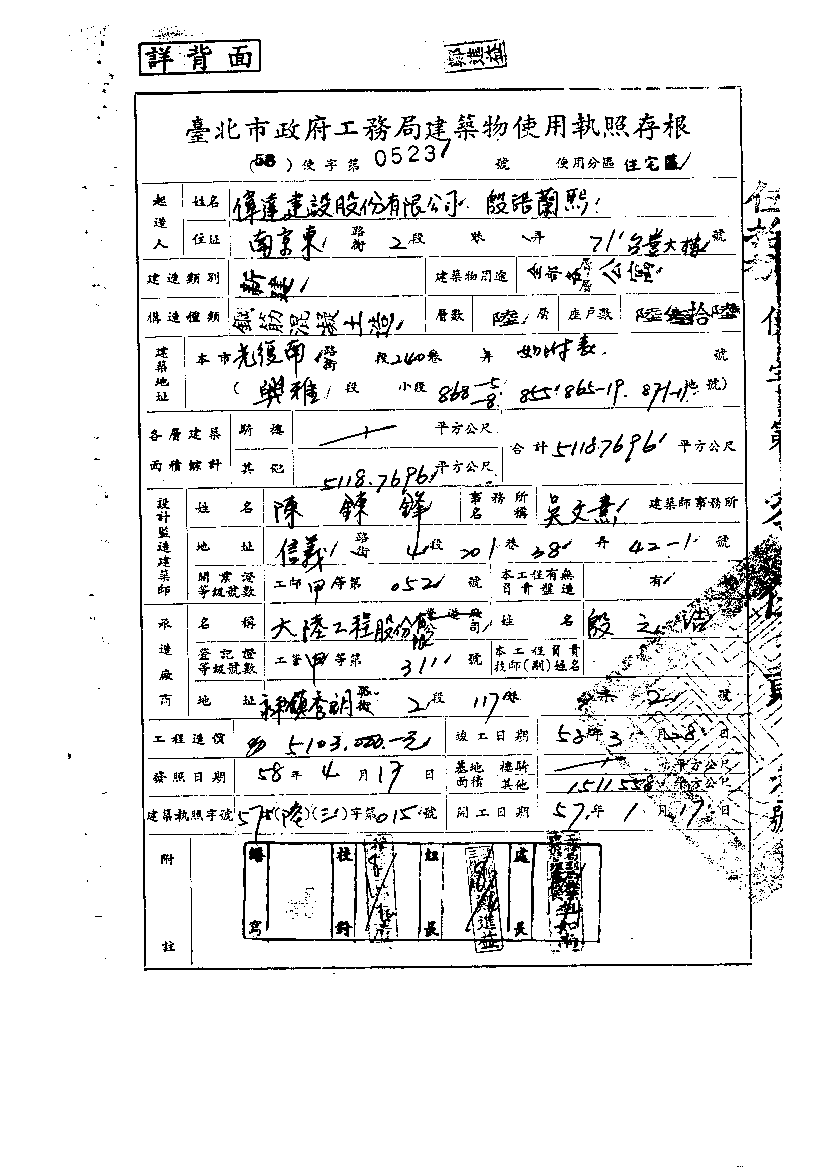 詳背面
鄭進益
臺北市政府工務局建築物使用執照存根
(58)使字第 05237 號 使用分區 住宅區
起造人 姓名 偉達建設股份有限公司 殷諾蘭熙
住址 南京東路街 2段 巷 弄 71 號
建造類別 新建 建築物用途 公寓
構造種類 鋼筋混凝土造 層數 陸層 座戶數 陸拾陸
建築地址 本市光復南路街 段240巷 弄 如附表 號
(興雅段 小段 868-5-8 855 865-19 871-11地號)
各層建築面積綜計 騎樓 平方公尺 合計 5118.7696 平方公尺
其他 5118.7696 平方公尺
設計監造建築師 姓名 陳錬鋒 事務所名稱 吳文熹 建築師事務所
地址 信義路街 4段 201巷 38弄 42-1號
開業證等級號數 工師甲等第 052 號 本工程有無負責監造 有
承造廠商 名稱 大陸工程股份有限公司 姓名 殷之浩
登記證等級號數 工營甲等第 311 號 本工程負責技師(副)姓名
地址 路街 2段 117巷 弄 2號
工程造價 5103,000.-元 竣工日期 58年3月28日
發照日期 58年4月17日 基地面積 騎樓 平方公尺
其他 1511.558 平方公尺
建築執照字號 57(陸)(三)字第015號 開工日期 57年1月17日
附註 繕寫 校對 組長 處長